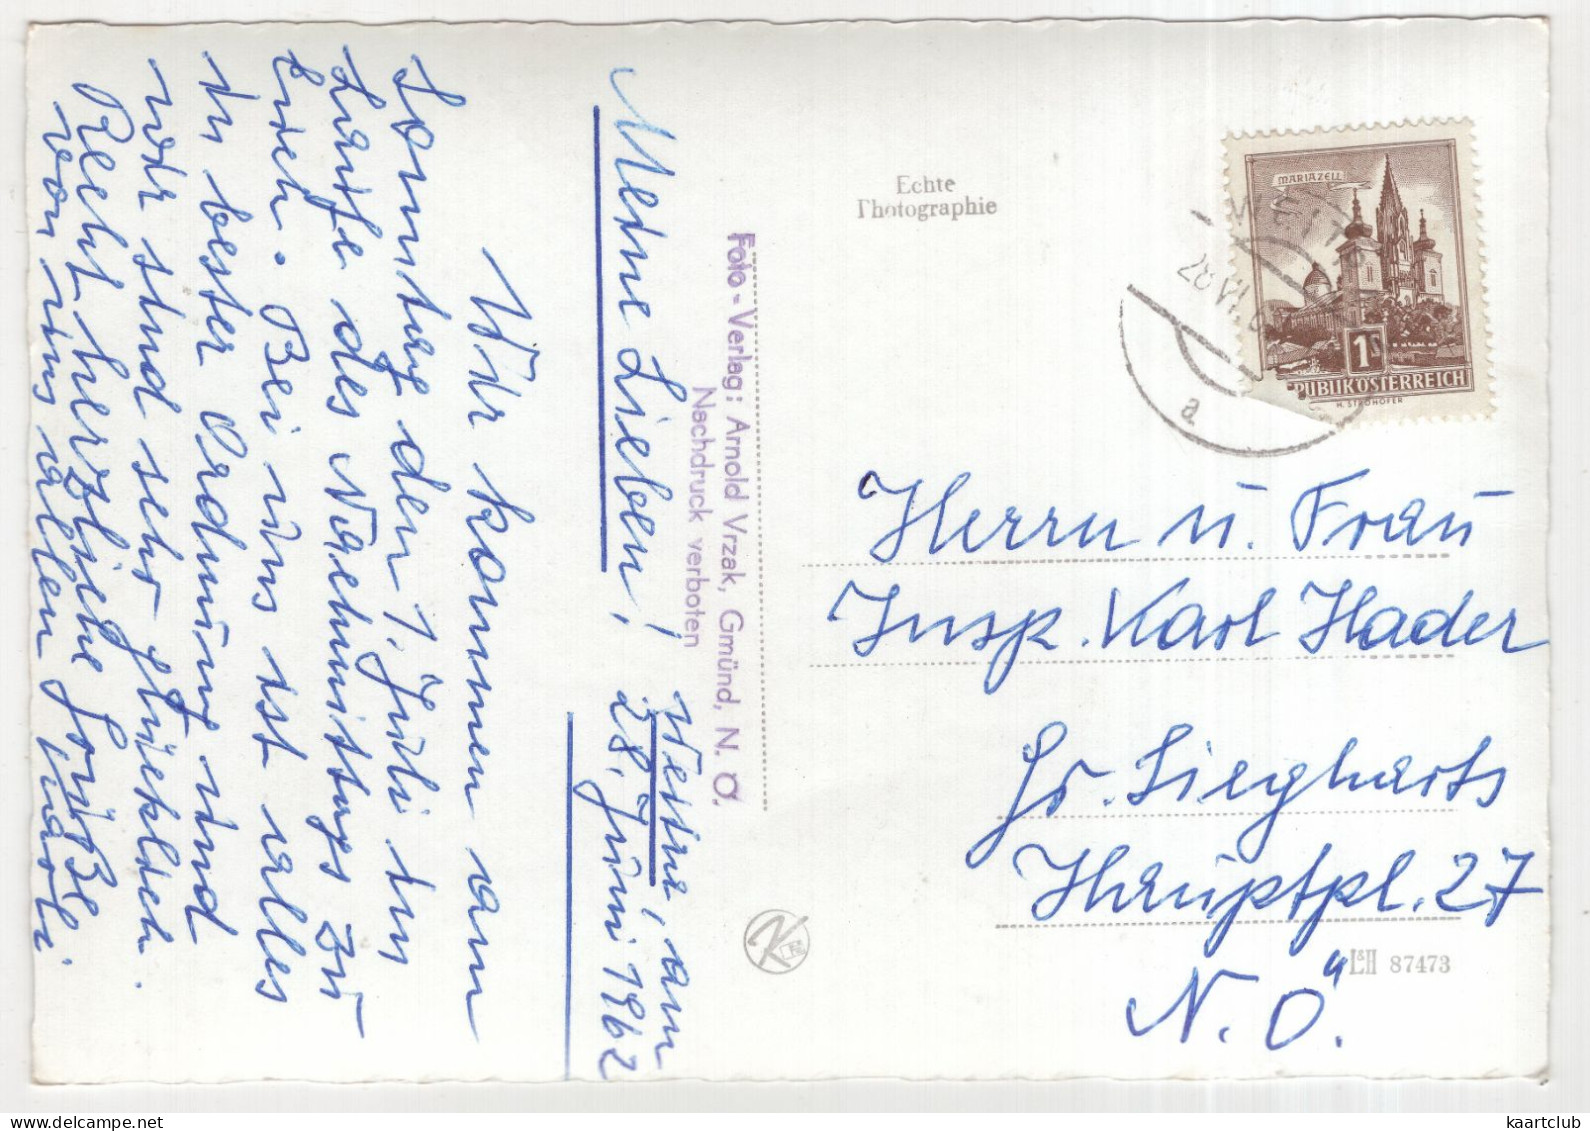 Meine Lieben!
Weitra, am
28. Juni 1962
Wir kommen am
Sonntag den 1. Juli im
Laufe des Nachmittags zu
Euch. Bei uns ist alles
in bester Ordnung und
wir sind sehr glücklich.
Recht herzliche Grüße
von uns allen
Foto-Verlag: Arnold Vrzak, Gmünd, N. Ö.
Nachdruck verboten
Echte
Photographie
MARIAZELL
1S
PUBLIK ÖSTERREICH
H. STROHOFER
WEITR
28 VI. 6
a
Herrn u. Frau
Insp. Karl Hader
Gr. Siegharts
Hauptpl. 27
N. Ö.
L&H 87473
kaartclub